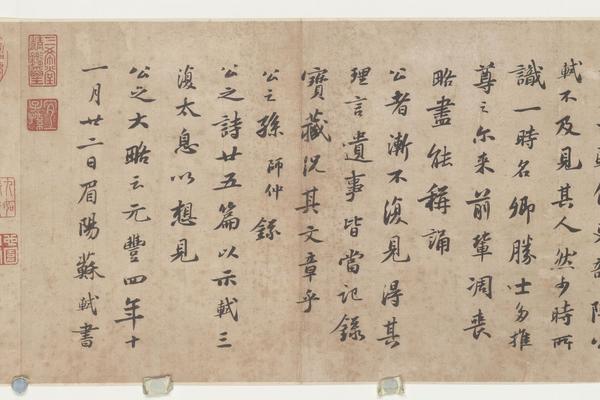 軾不及見其人然少時所
識一時名卿勝士多推
尊之尔来前輩凋喪
略盡能稱誦
公者漸不復見得其
理言遺事皆當記録
寶藏況其文章乎
公之孫師仲録
公之詩廿五篇以示軾三
復太息以想見
公之大略云元豐四年十
一月廿二日眉陽蘇軾書